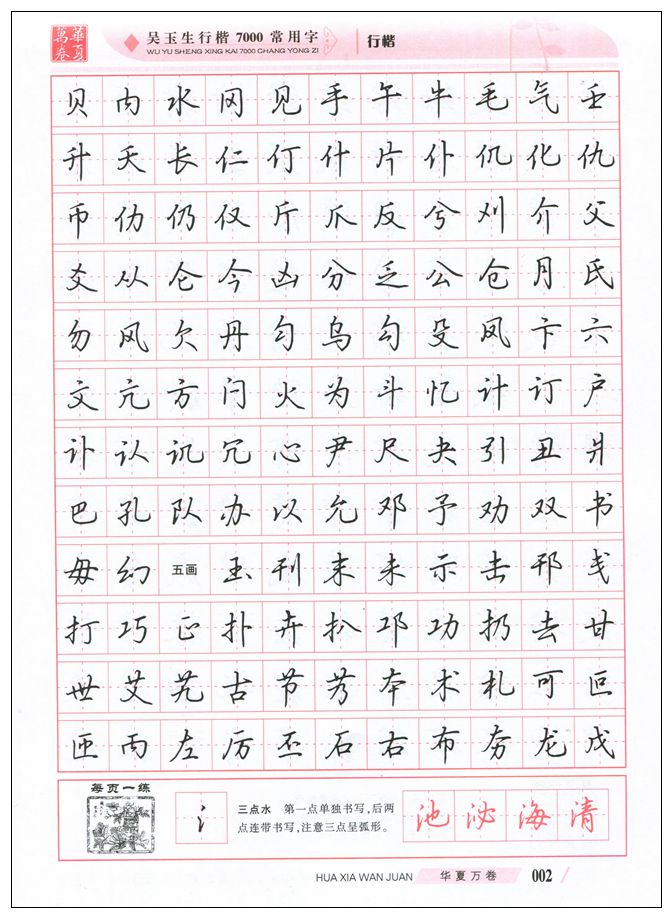 華夏萬卷
吴玉生行楷 7000 常用字
WU YU SHENG XING KAI 7000 CHANG YONG ZI
行楷
贝 内 水 冈 见 手 午 牛 毛 气 壬
升 夭 长 仁 仃 什 片 仆 仉 化 仇
币 仂 仍 仅 斤 爪 反 兮 刈 介 父
爻 从 仑 今 凶 分 乏 公 仓 月 氏
勿 风 欠 丹 匀 乌 勾 殳 凤 卞 六
文 亢 方 闩 火 为 斗 忆 计 订 户
讣 认 讥 冗 心 尹 尺 夬 引 丑 爿
巴 孔 队 办 以 允 邓 予 劝 双 书
毋 幻 五画 玉 刊 末 未 示 击 邗 戋
打 巧 正 扑 卉 扒 邛 功 扔 去 甘
世 艾 艽 古 节 艿 本 术 札 可 叵
匝 丙 左 厉 丕 石 右 布 夯 龙 戊
每页一练
氵
三点水 第一点单独书写,后两
点连带书写,注意三点呈弧形。
池 泌 海 清
HUA XIA WAN JUAN 华夏万卷 002